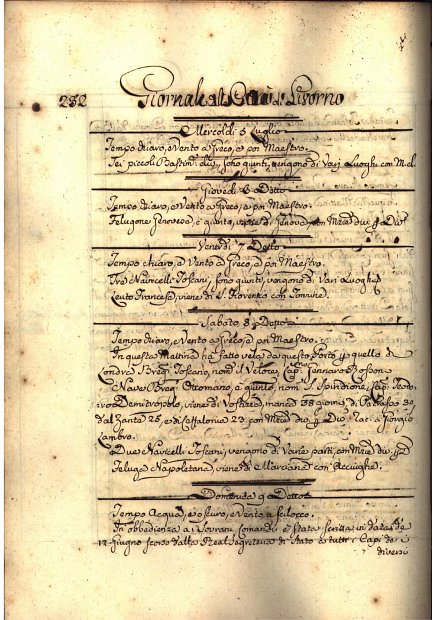 232 Giornale di Livorno
Mercoldi 5 Luglio
Tempo chiaro, e Vento a Greco, e poi Maestro.
Sei piccoli Bastim. sono giunti, vengono di Varj Luoghi con M.
Giovedi 6 Detto
Tempo chiaro, e Vento a Greco, e poi Maestro.
Felugone Genovese, è giunto, viene di Genova con Mer. div.
Venerdi 7 Detto
Tempo chiaro, e Vento a Greco, e poi Maestro.
Tre Navicelli Toscani, sono giunti, vengono di Vari Luoghi
Leuto Francese, viene di S. Fiorenzo con
Sabato 8 Detto
Tempo chiaro, e Vento a Greco, e poi Maestro.
In questa Mattina ha fatto vela da questo Porto quella di
Londra Toscano, nom. il Veloce, Cap. Gennaro
Nave Ottomano, è giunto, nom. S. Spiridione, Cap.
viene di manca 38 giorni, di
dal Zante 25, e di Ceffalonia 23, con Mer. div. a Giorgio
Lambro.
Due Navicelli Toscani, vengono di Varie parti, con Mer. div.
Feluga Napoletana, viene di Marciana con Acciughe.
Domenica 9 Detto
Tempo Acqua, e oscuro, e Vento a Scilocco.
In obbedienza a Sovrani Comandi è stata scritta in data de
12 Giugno scorso dalla Real Segreteria di Stato a tutti i Capi de i
diversi